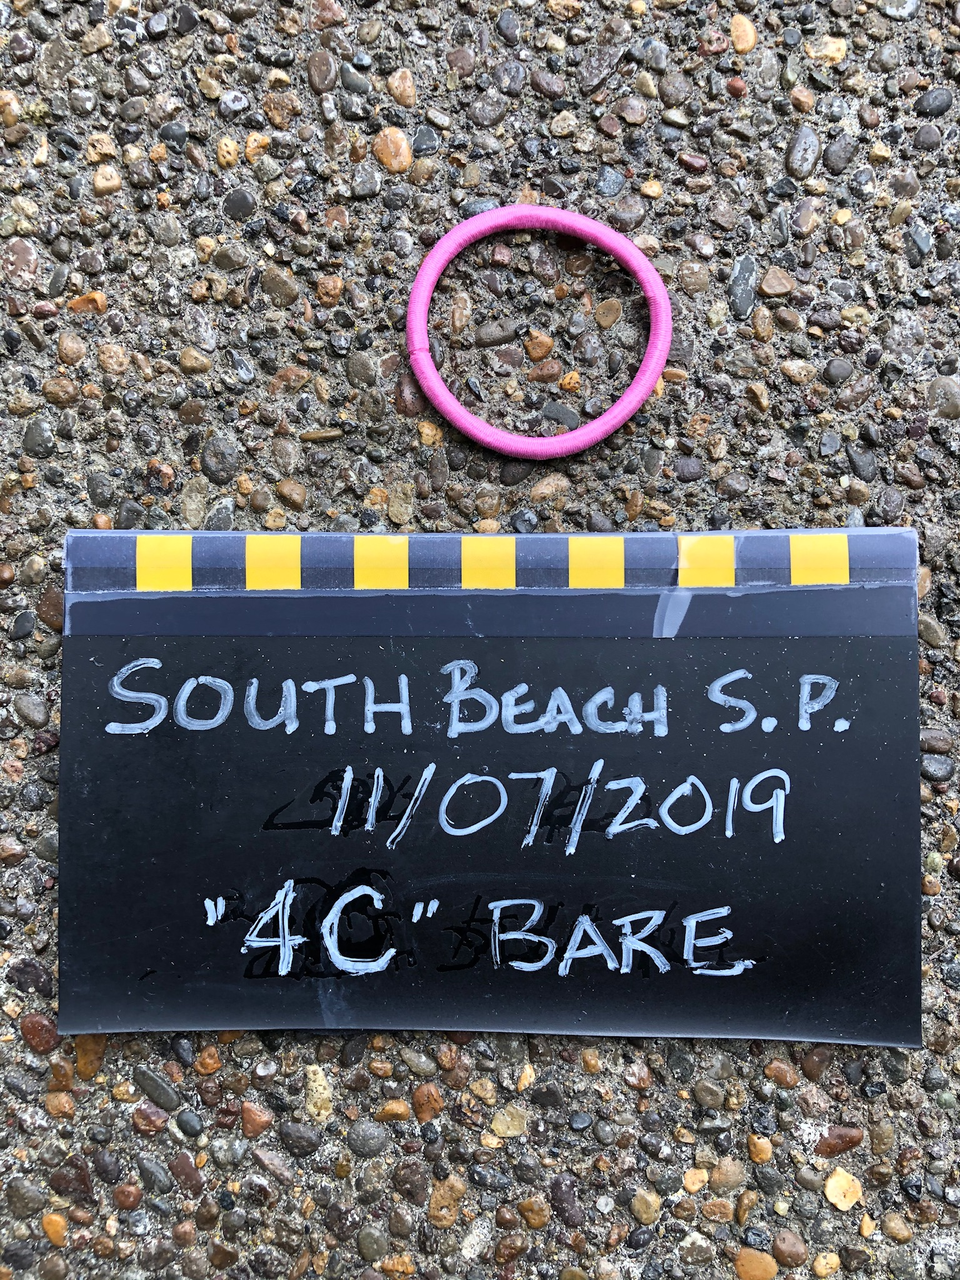 SOUTH BEACH S.P.
11/07/2019
"4C" BARE